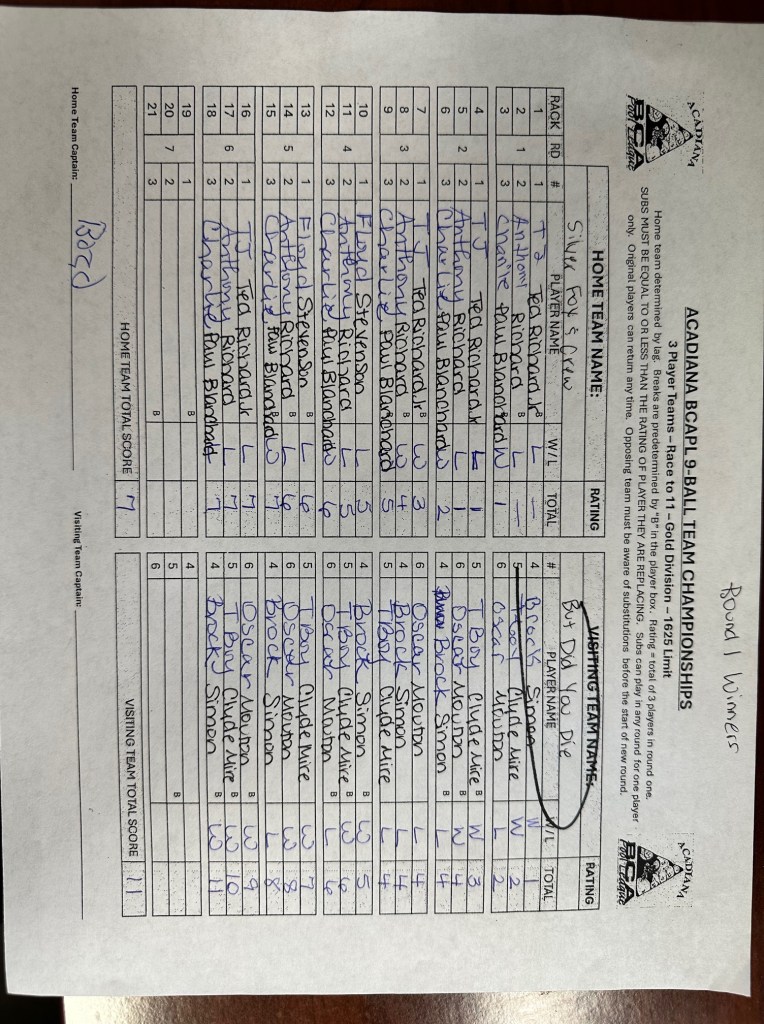 Round 1 Winners
ACADIANA
BCA
Pool League
ACADIANA BCAPL 9-BALL TEAM CHAMPIONSHIPS
3 Player Teams – Race to 11 – Gold Division – 1625 Limit
ACADIANA
BCA
Pool League
Home team determined by lag. Breaks are predetermined by "B" in the player box. Rating = total of 3 players in round one.
SUBS MUST BE EQUAL TO OR LESS THAN THE RATING OF PLAYER THEY ARE REPLACING. Subs can play in any round for one player
only. Original players can return any time. Opposing team must be aware of substitutions before the start of new round.
HOME TEAM NAME: RATING VISITING TEAM NAME: RATING
Silver Fox & Crew But Did You Die
RACK RD # PLAYER NAME W/L TOTAL # PLAYER NAME W/L TOTAL
1 1 TJ Ted Richard Jr B L — 4 Brock Simon W 1
2 1 2 Anthony Richard B L — 5 TBoy Clyde Mire W 2
3 3 Charlie Paul Blanchard W 1 6 Oscar Mouton L 2
4 1 TJ Ted Richard Jr L 1 5 TBoy Clyde Mire B W 3
5 2 2 Anthony Richard L 1 6 Oscar Mouton B W 4
6 3 Charlie Paul Blanchard W 2 4 Brock Simon B L 4
7 1 TJ Ted Richard Jr B W 3 6 Oscar Mouton L 4
8 3 2 Anthony Richard B W 4 4 Brock Simon L 4
9 3 Charlie Paul Blanchard 5 5 TBoy Clyde Mire L 4
10 1 Floyd Stevenson L 5 4 Brock Simon B W 5
11 4 2 Anthony Richard L 5 5 TBoy Clyde Mire B W 6
12 3 Charlie Paul Blanchard W 6 6 Oscar Mouton B L 6
13 1 Floyd Stevenson B L 6 5 TBoy Clyde Mire W 7
14 5 2 Anthony Richard B L 6 6 Oscar Mouton W 8
15 3 Charlie Paul Blanchard W 7 4 Brock Simon L 8
16 1 TJ Ted Richard Jr L 7 6 Oscar Mouton B W 9
17 6 2 Anthony Richard L 7 5 TBoy Clyde Mire B W 10
18 3 Charlie Paul Blanchard 7 4 Brock Simon B W 11
19 1 B 4
20 7 2 5 B
21 3 B 6
HOME TEAM TOTAL SCORE 7 VISITING TEAM TOTAL SCORE 11
Home Team Captain: Visiting Team Captain: